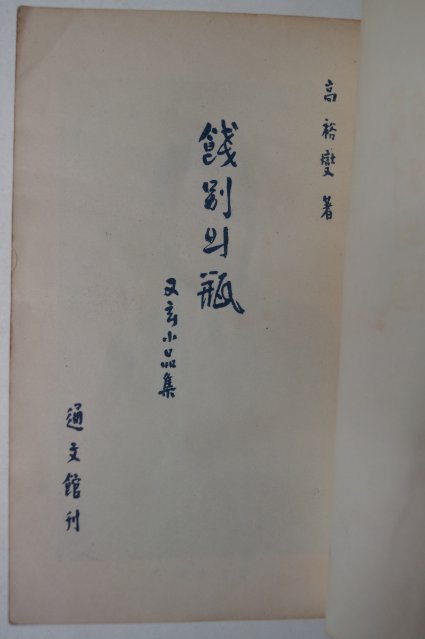 高裕燮 著
餞別의 瓶
又玄小品集
通文館刊